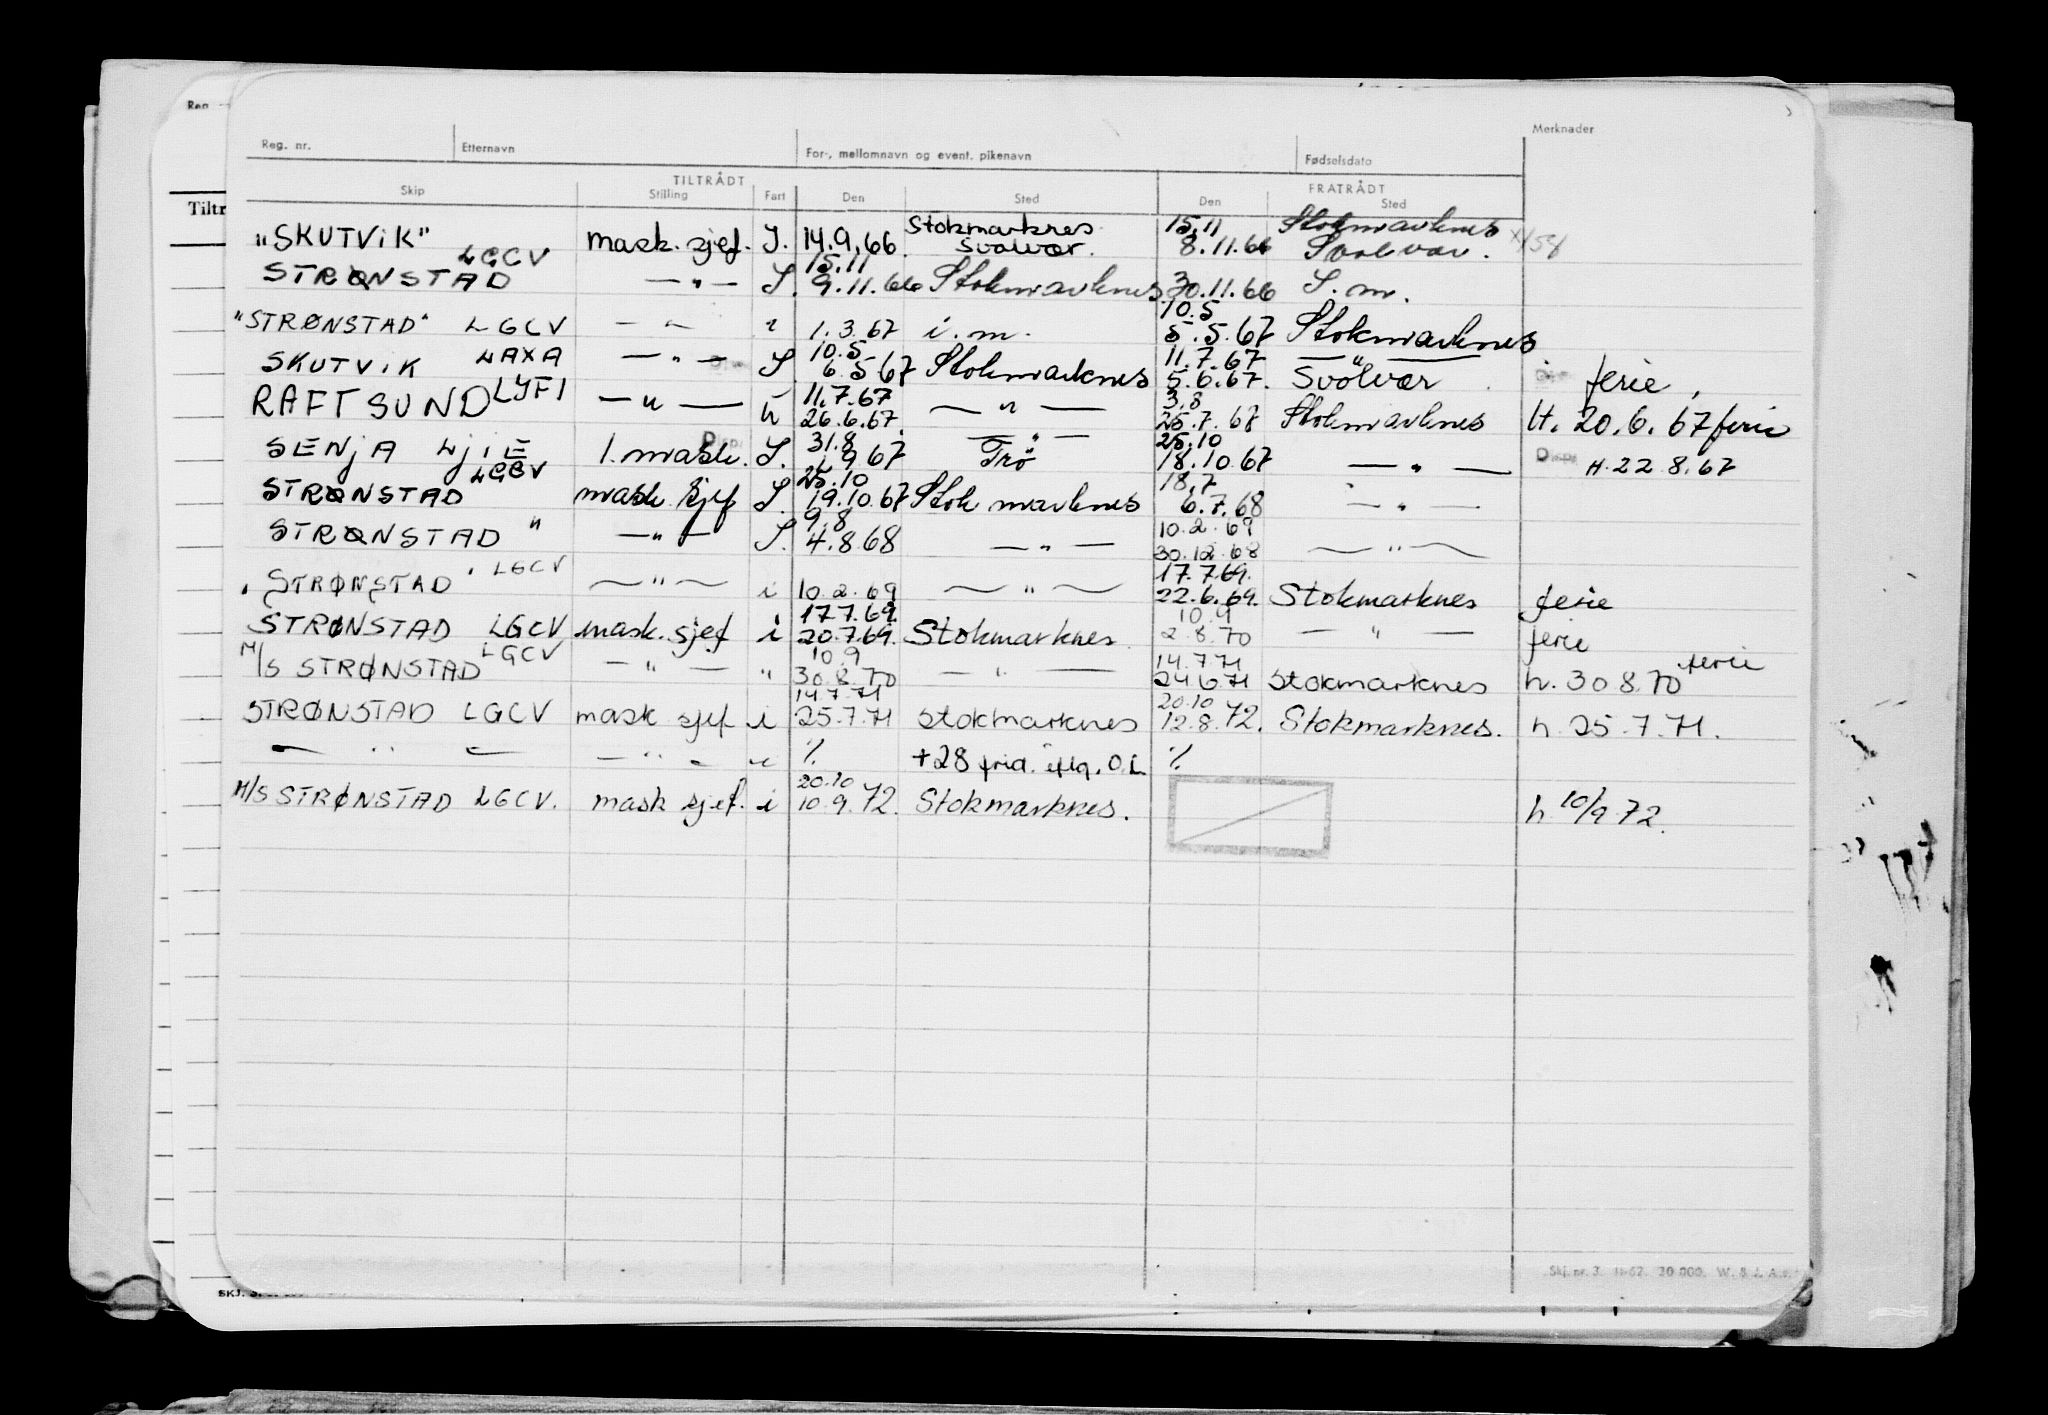 Reg.
Merknader
Reg. nr. Etternavn For-, mellomnavn og event. pikenavn Fødselsdato
TILTRÅDT FRATRÅDT
Skip Stilling Fart Den Sted Den Sted
Tiltr
Stokmarknes 15.11 Stokmarknes
"SKUTVIK" mask. sjef. I. 14.9.66 Svolvær. 8.11.66 Svolvær.
LGCV 15.11
STRØNSTAD — " — I. 9.11.66 Stokmarknes 30.11.66 I. m.
10.5
"STRØNSTAD" LGCV — " — " 1.3.67 i. m. 5.5.67 Stokmarknes
10.5 11.7.67 — " —
SKUTVIK LAXA — " — I 6.5.67 Stokmarknes 5.6.67. Svolvær ferie,
11.7.67 3.8
RAFTSUND LYFI — " — " 26.6.67. — " — 25.7.67 Stokmarknes H. 20.6.67 ferie
31.8 — " — 25.10
SENJA LJIE 1. mask. I. 1.9.67 Trö 18.10.67 — " — H. 22.8.67
LGCV 25.10 18.7
STRØNSTAD mask sjef I. 19.10.67 Stokmarknes 6.7.68 — " —
9.8 10.2.69
STRØNSTAD " — " — I. 4.8.68 — " — 30.12.68 — " —
17.7.69.
"STRØNSTAD" LGCV — " — i 10.2.69 — " — 22.6.69. Stokmarknes ferie
17.7.69. 10.9
STRØNSTAD LGCV mask. sjef i 20.7.69. Stokmarknes. 2.8.70 — " — ferie
10.9 14.7.71
M/S STRØNSTAD LGCV — " — " 30.8.70 — " — 24.6.71 Stokmarknes h. 30.8.70 ferie
14.7.71 20.10
STRØNSTAD LGCV mask sjef i 25.7.71 Stokmarknes 12.8.72. Stokmarknes. h. 25.7.71.
— " — — " — " % +28 frid. iflg. O.L. %
20.10
M/S STRØNSTAD LGCV. mask sjef. i 10.9.72. Stokmarknes. h 10/9.72.
Skj. nr. 3. 20 000. W. & J. A.s.
SKJ.